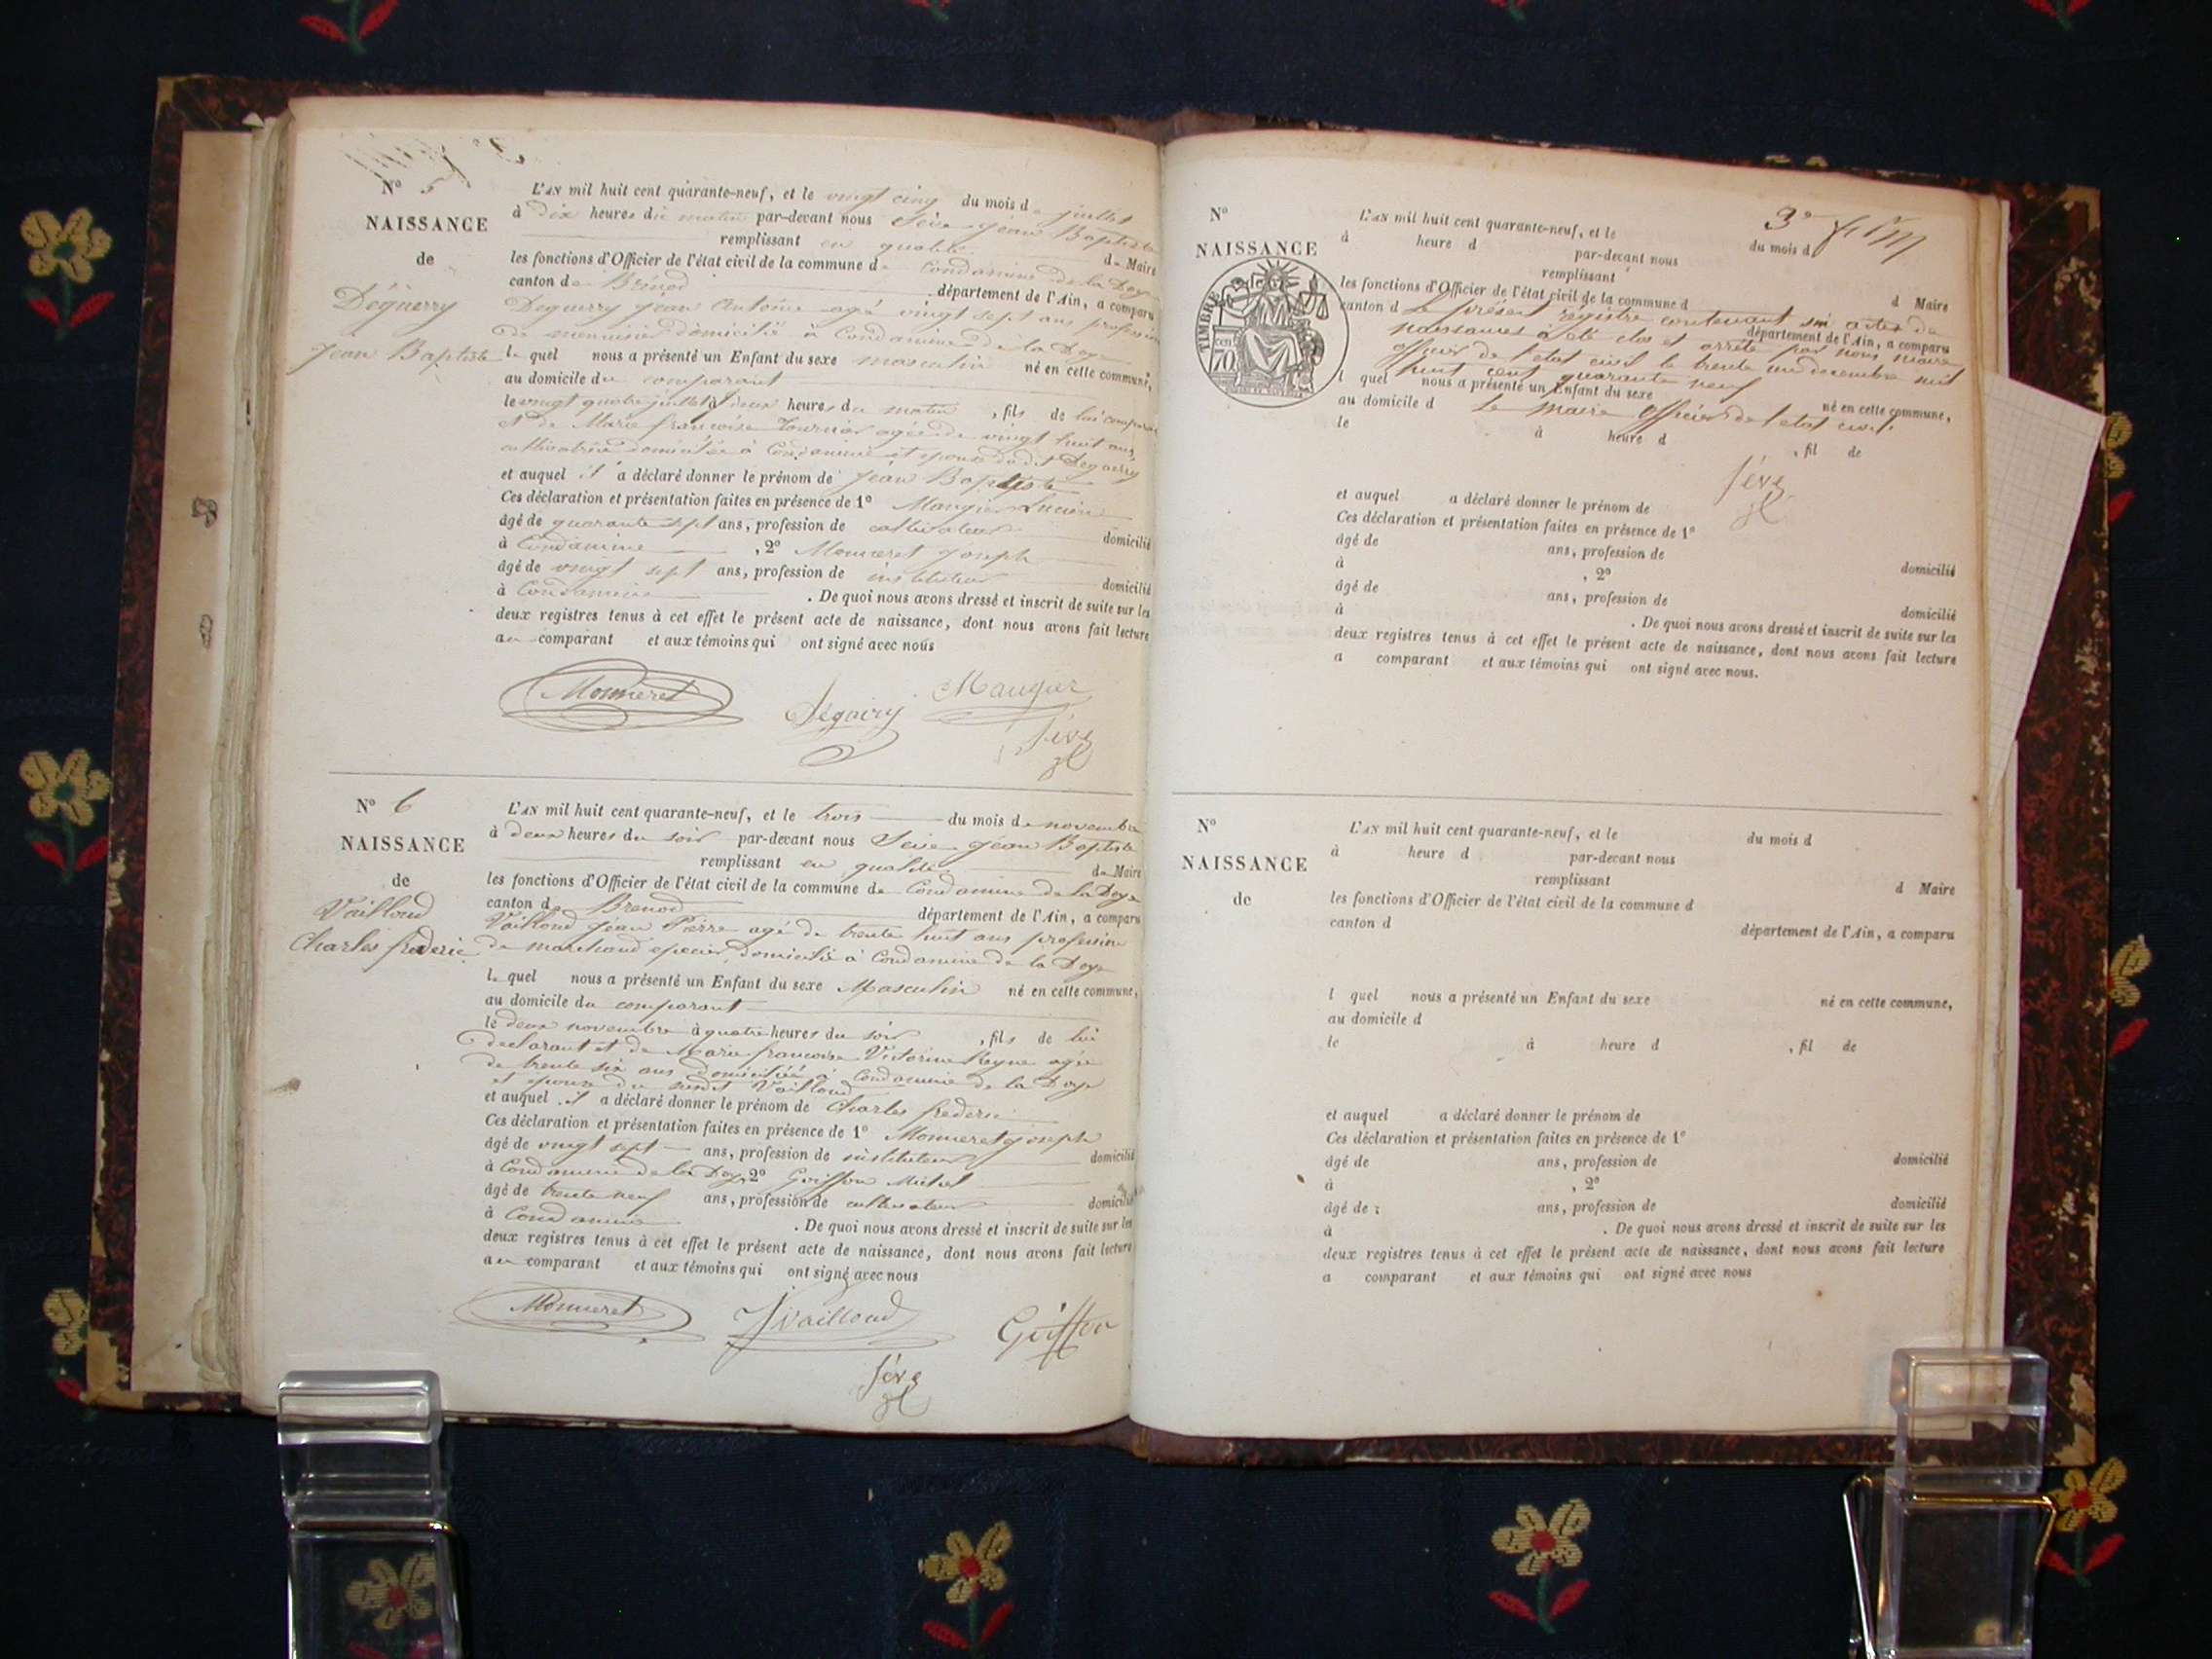 N° 5
NAISSANCE
de
Déguerry
Jean Baptiste
L'AN mil huit cent quarante-neuf, et le vingt cinq du mois de juillet
à dix heures du matin par-devant nous Sève Jean Baptiste
remplissant en qualité de Maire
les fonctions d'Officier de l'état civil de la commune de Condamine de la Doye
canton de Brénod département de l'Ain, a comparu
Deguerry Jean Antoine agé vingt sept ans profession
de menuisier domicilié à Condamine de la Doye
le quel nous a présenté un Enfant du sexe masculin né en cette commune,
au domicile du comparant
le vingt quatre juillet à deux heures du matin, fils de lui comparant
et de Marie françoise Tournier agée de vingt huit ans,
cultivatrice domiciliée à Condamine et epouse dudit Deguerry
et auquel il a déclaré donner le prénom de Jean Baptiste
Ces déclaration et présentation faites en présence de 1°
âgé de quarante sept ans, profession de cultivateur domicilié
à Condamine, 2° Monneret Joseph
âgé de vingt sept ans, profession de instituteur domicilié
à Condamine. De quoi nous avons dressé et inscrit de suite sur les
deux registres tenus à cet effet le présent acte de naissance, dont nous avons fait lecture
au comparant et aux témoins qui ont signé avec nous
Monneret
Sève
N° 6
NAISSANCE
de
Vailloud
Charles frederic
L'AN mil huit cent quarante-neuf, et le trois du mois de novembre
à deux heures du soir par-devant nous Sève Jean Baptiste
remplissant en qualité de Maire
les fonctions d'Officier de l'état civil de la commune de Condamine de la Doye
canton de Brenod département de l'Ain, a comparu
Vailloud Jean Pierre agé de trente huit ans profession
de marchand epicier domicilié à Condamine de la Doye
le quel nous a présenté un Enfant du sexe Masculin né en cette commune,
au domicile du comparant
le deux novembre à quatre heures du soir, fils de lui
declarant et de Marie françoise Victorine agée
de trente six ans domiciliée à Condamine de la Doye
et epouse du susdit Vailloud
et auquel il a déclaré donner le prénom de Charles frederic
Ces déclaration et présentation faites en présence de 1° Monneret Joseph
âgé de vingt sept ans, profession de instituteur domicilié
à Condamine de la Doye, 2° Goiffon Michel
âgé de trente neuf ans, profession de cultivateur domicilié
à Condamine. De quoi nous avons dressé et inscrit de suite sur les
deux registres tenus à cet effet le présent acte de naissance, dont nous avons fait lecture
au comparant et aux témoins qui ont signé avec nous
Monneret
Vailloud
Goiffon
Sève
3e
N°
NAISSANCE
TIMBRE
70 cen
L'AN mil huit cent quarante-neuf, et le du mois d
à heure d par-devant nous
remplissant d Maire
les fonctions d'Officier de l'état civil de la commune d
canton d département de l'Ain, a comparu
Le présent registre contenant six actes de
naissances à été clos et arrêté par nous maire
officier de l'etat civil le trente un decembre mil
huit cent quarante neuf
l quel nous a présenté un Enfant du sexe né en cette commune,
au domicile d
Le Maire officier de l'etat civil
le à heure d, fil de
Sève
et auquel a déclaré donner le prénom de
Ces déclaration et présentation faites en présence de 1°
âgé de ans, profession de domicilié
à, 2°
âgé de ans, profession de domicilié
à. De quoi nous avons dressé et inscrit de suite sur les
deux registres tenus à cet effet le présent acte de naissance, dont nous avons fait lecture
a comparant et aux témoins qui ont signé avec nous.
N°
NAISSANCE
de
L'AN mil huit cent quarante-neuf, et le du mois d
à heure d par-devant nous
remplissant d Maire
les fonctions d'Officier de l'état civil de la commune d
canton d département de l'Ain, a comparu
l quel nous a présenté un Enfant du sexe né en cette commune,
au domicile d
le à heure d, fil de
et auquel a déclaré donner le prénom de
Ces déclaration et présentation faites en présence de 1°
âgé de ans, profession de domicilié
à, 2°
âgé de ans, profession de domicilié
à. De quoi nous avons dressé et inscrit de suite sur les
deux registres tenus à cet effet le présent acte de naissance, dont nous avons fait lecture
a comparant et aux témoins qui ont signé avec nous